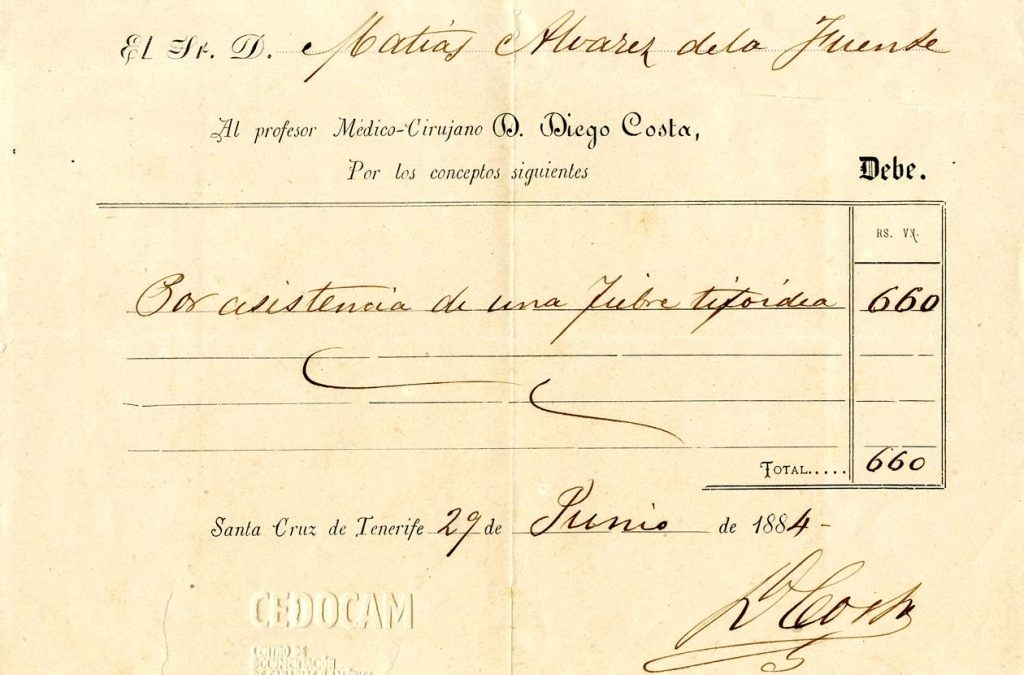 El Sr. D. Matías Alvarez de la Fuente
Al profesor Médico-Cirujano D. Diego Costa,
Por los conceptos siguientes Debe.
RS. VN.
Por asistencia de una fiebre tifoidea 660
TOTAL..... 660
Santa Cruz de Tenerife 29 de Junio de 1884-
D Costa
CEDOCAM
CENTRO DE
DOCUMENTACIÓN